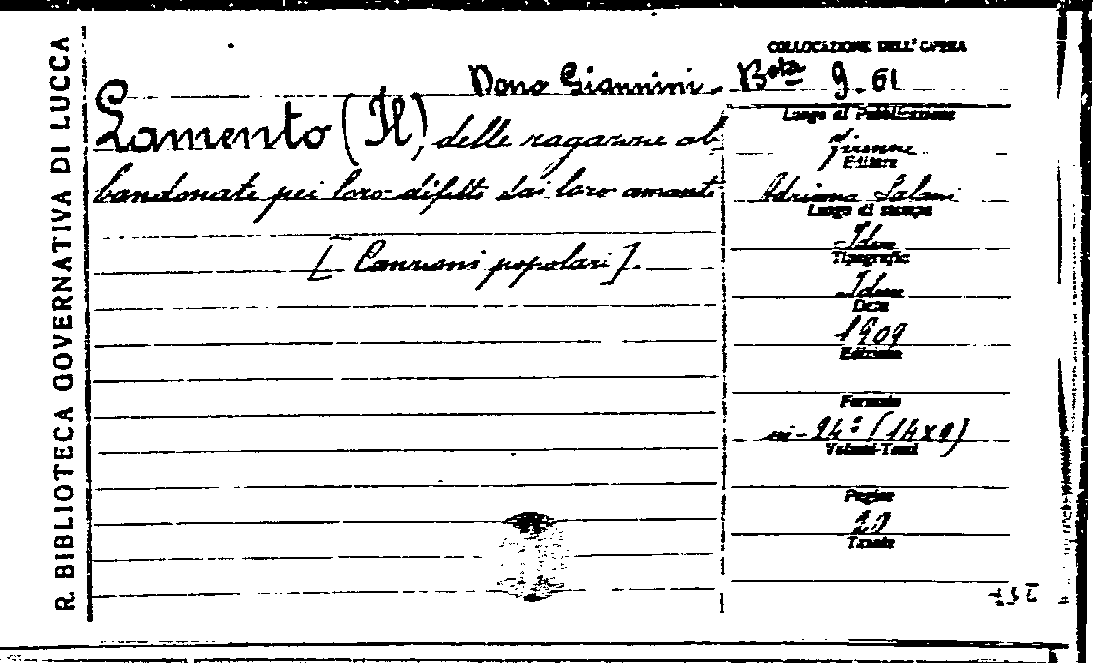 R. BIBLIOTECA GOVERNATIVA DI LUCCA
COLLOCAZIONE DELL'OPERA
Dono Giannini - Bta 9.61
Lamento (Il) delle ragazze ab
bandonate pei loro difetti dai loro amanti
[Canzoni popolari].
Luogo di Pubblicazione
Firenze
Editore
Adriano Salani
Luogo di stampa
Idem
Tipografo
Idem
Data
1909
Edizione
Formato
in-24° (14x9)
Volumi-Tomi
Pagine
20
Tavole